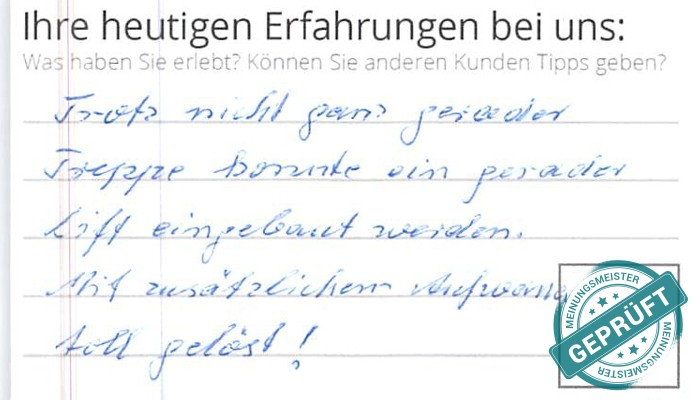 Ihre heutigen Erfahrungen bei uns:
Was haben Sie erlebt? Können Sie anderen Kunden Tipps geben?
Trotz nicht ganz gerader
Treppe konnte ein gerader
Lift eingebaut werden.
Mit zusätzlichem Aufwand
toll gelöst!
MEINUNGSMEISTER
GEPRÜFT
MEINUNGSMEISTER